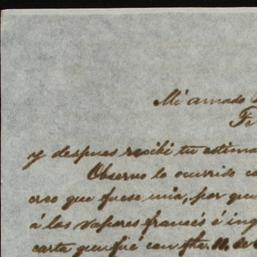 Mi amado
y despues recibi tu estima
Observo lo ocurrido co
creo que fuese mia, por que
á los vapores francés é ing
carta que fué con fha. 11, de